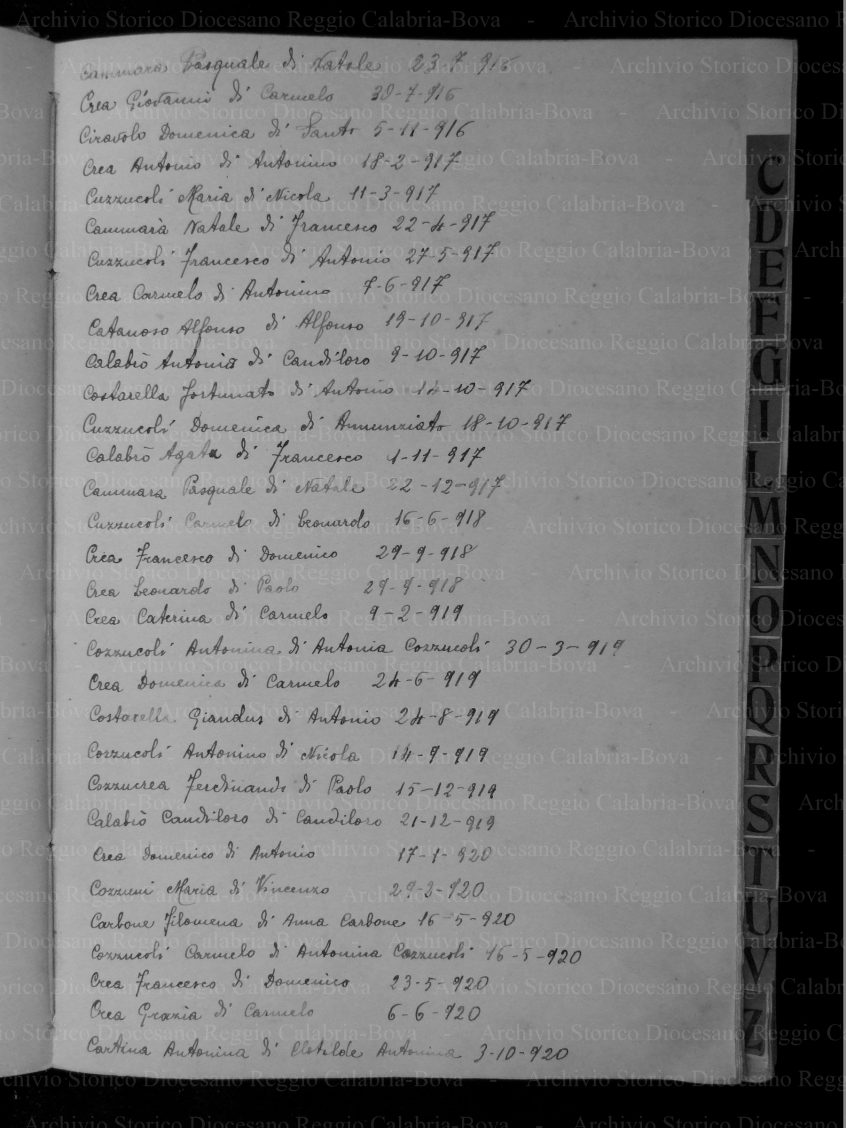 Cammara Pasquale di Natale 23-7 916
Crea Giovanni di Carmelo 30-7-916
Ciravolo Domenica di Santo 5-11-916
Crea Antonio di Antonino 18-2-917
Cuzzucoli Maria di Nicola 11-3-917
Cammarà Natale di Francesco 22-4-917
Cuzzucoli Francesco di Antonio 27-5-917
Crea Carmelo di Antonino 7-6-917
Catanoso Alfonso di Alfonso 19-10-917
Calabrò Antonia di Candiloro 9-10-917
Costarella Fortunato di Antonio 14-10-917
Cuzzucoli Domenica di Annunziato 18-10-917
Calabrò Agata di Francesco 1-11-917
Cammara Pasquale di Natale 22-12-917
Cuzzucoli Carmelo di Leonardo 16-6-918
Crea Francesco di Domenico 29-9-918
Crea Leonardo di Paolo 29-9-918
Crea Caterina di Carmelo 9-2-919
Cozzucoli Antonina di Antonia Cozzucoli 30-3-919
Crea Domenica di Carmelo 24-6-919
Costarella Giandus di Antonio 24-8-919
Cozzucoli Antonino di Nicola 14-9-919
Cozzucrea Ferdinando di Paolo 15-12-919
Calabrò Candiloro di Candiloro 21-12-919
Crea Domenico di Antonio 17-1-920
Cozzumi Maria di Vincenzo 29-3-920
Carbone Filomena di Anna Carbone 16-5-920
Cozzucoli Carmelo di Antonina Cozzucoli 16-5-920
Crea Francesco di Domenico 23-5-920
Crea Grazia di Carmelo 6-6-920
Cartina Antonina di Clotilde Antonina 3-10-920
C
D
E
F
G
I
L
M
N
O
P
Q
R
S
T
U
V
Z
Archivio Storico Diocesano Reggio Calabria-Bova